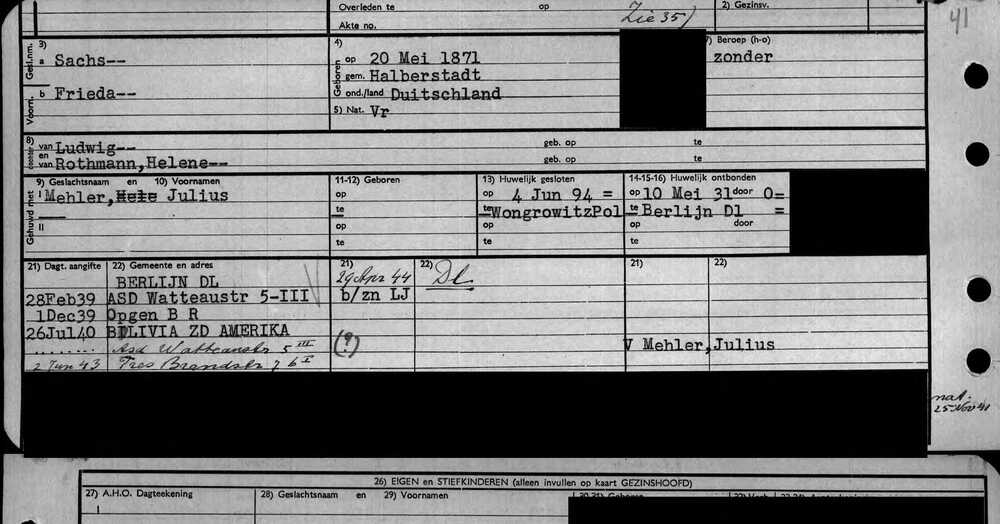 Overleden te op Zie 35) 2) Gezinsv.
Akte no.
41
3) 4) 7) Beroep (h-o)
Gesl.nm. a Sachs-- Geboren op 20 Mei 1871 zonder
gem. Halberstadt
Voorn. b Frieda-- ond./land Duitschland
5) Nat. Vr
8) van Ludwig-- geb. op te
en
van Rothmann,Helene-- geb. op te
9) Geslachtsnaam en 10) Voornamen 11-12) Geboren 13) Huwelijk gesloten 14-15-16) Huwelijk ontbonden
Gehuwd met I Mehler, Julius op op 4 Jun 94 = op 10 Mei 31 door O=
te te WongrowitzPol te Berlijn Dl =
II op op op door
te te te
21) Dagt. aangifte 22) Gemeente en adres 21) 22) 21) 22)
BERLIJN DL 29 Apr 44 Dl.
28Feb39 ASD Watteaustr 5-III b/zn LJ
1Dec39 Opgen B R
26Jul40 BOLIVIA ZD AMERIKA
........ Asd Watteaustr 5 III (?) V Mehler,Julius
2 Jun 43 Tres 
nat.
25 Nov 41
26) EIGEN en STIEFKINDEREN (alleen invullen op kaart GEZINSHOOFD)
27) A.H.O. Dagteekening 28) Geslachtsnaam en 29) Voornamen